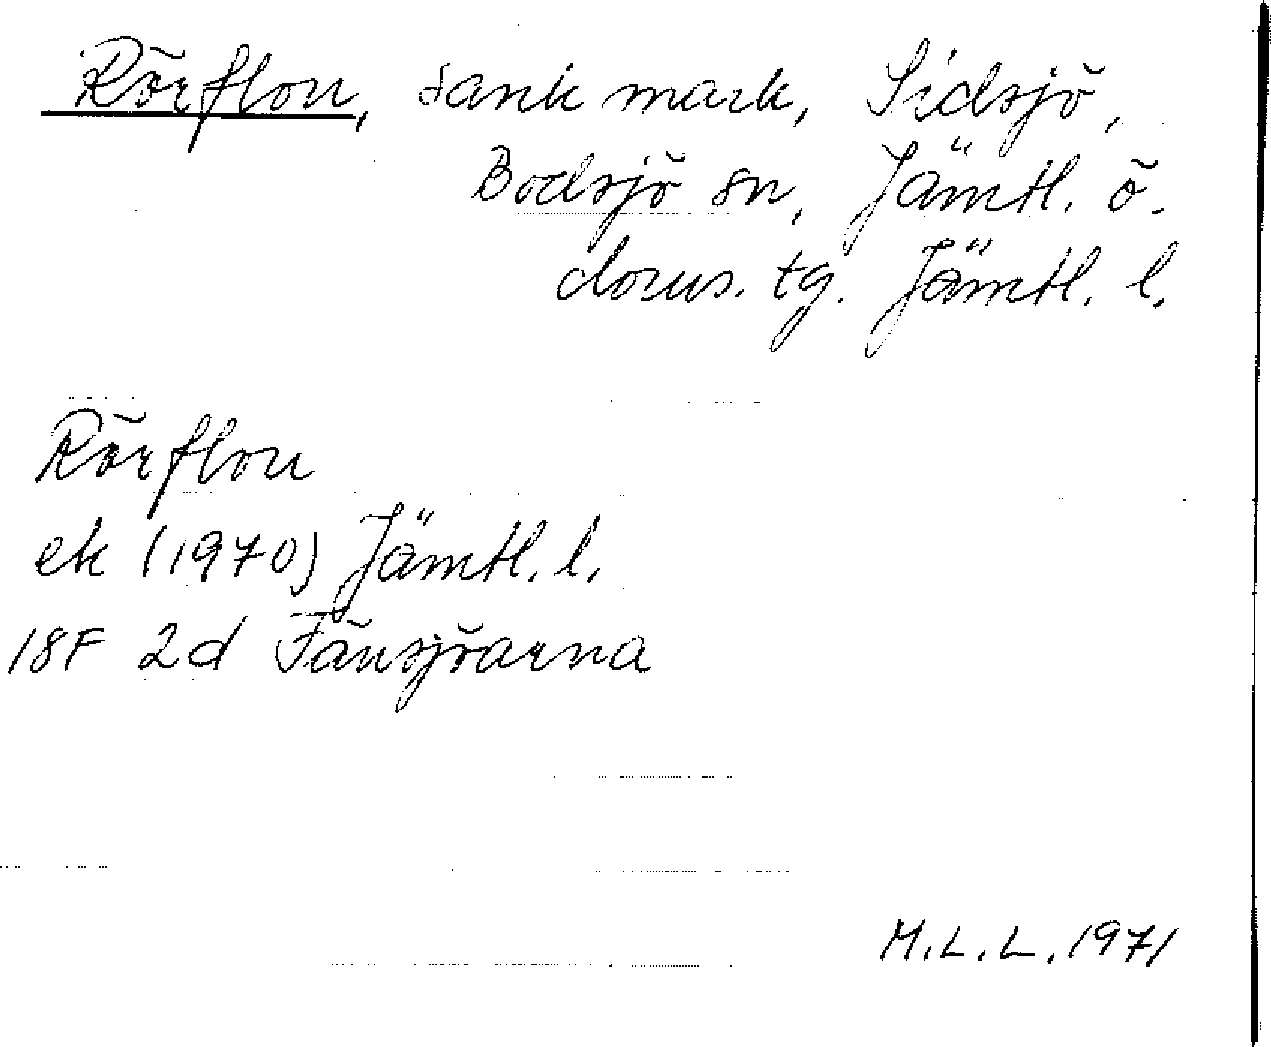 Rörflon, sank mark, Sidsjö,
Bodsjö sn, Jämtl. ö.
doms. tg. Jämtl. l.
Rörflon
ek (1970) Jämtl. l.
18F 2d Fånsjöarna
M.L.L. 1971